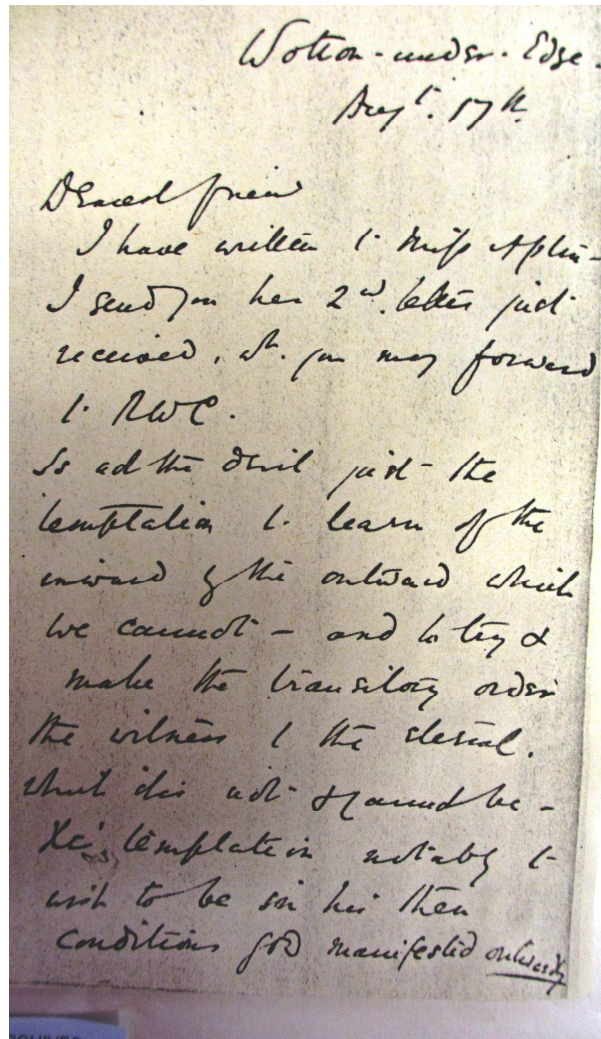 Wotton-under-Edge-
Augt. 17th
Dearest friend
I have written t. Miss Aplin-
I send you her 2nd. letter just
received, wh. you may forward
t. RWC.
Is not the devil just the
temptation t. learn of the
inward by the outward which
we cannot - and to try &
make the transitory order
the witness t the eternal.
what it is not & cannot be -
temptation notably t
wish to be in his then
conditions God manifested outwardly